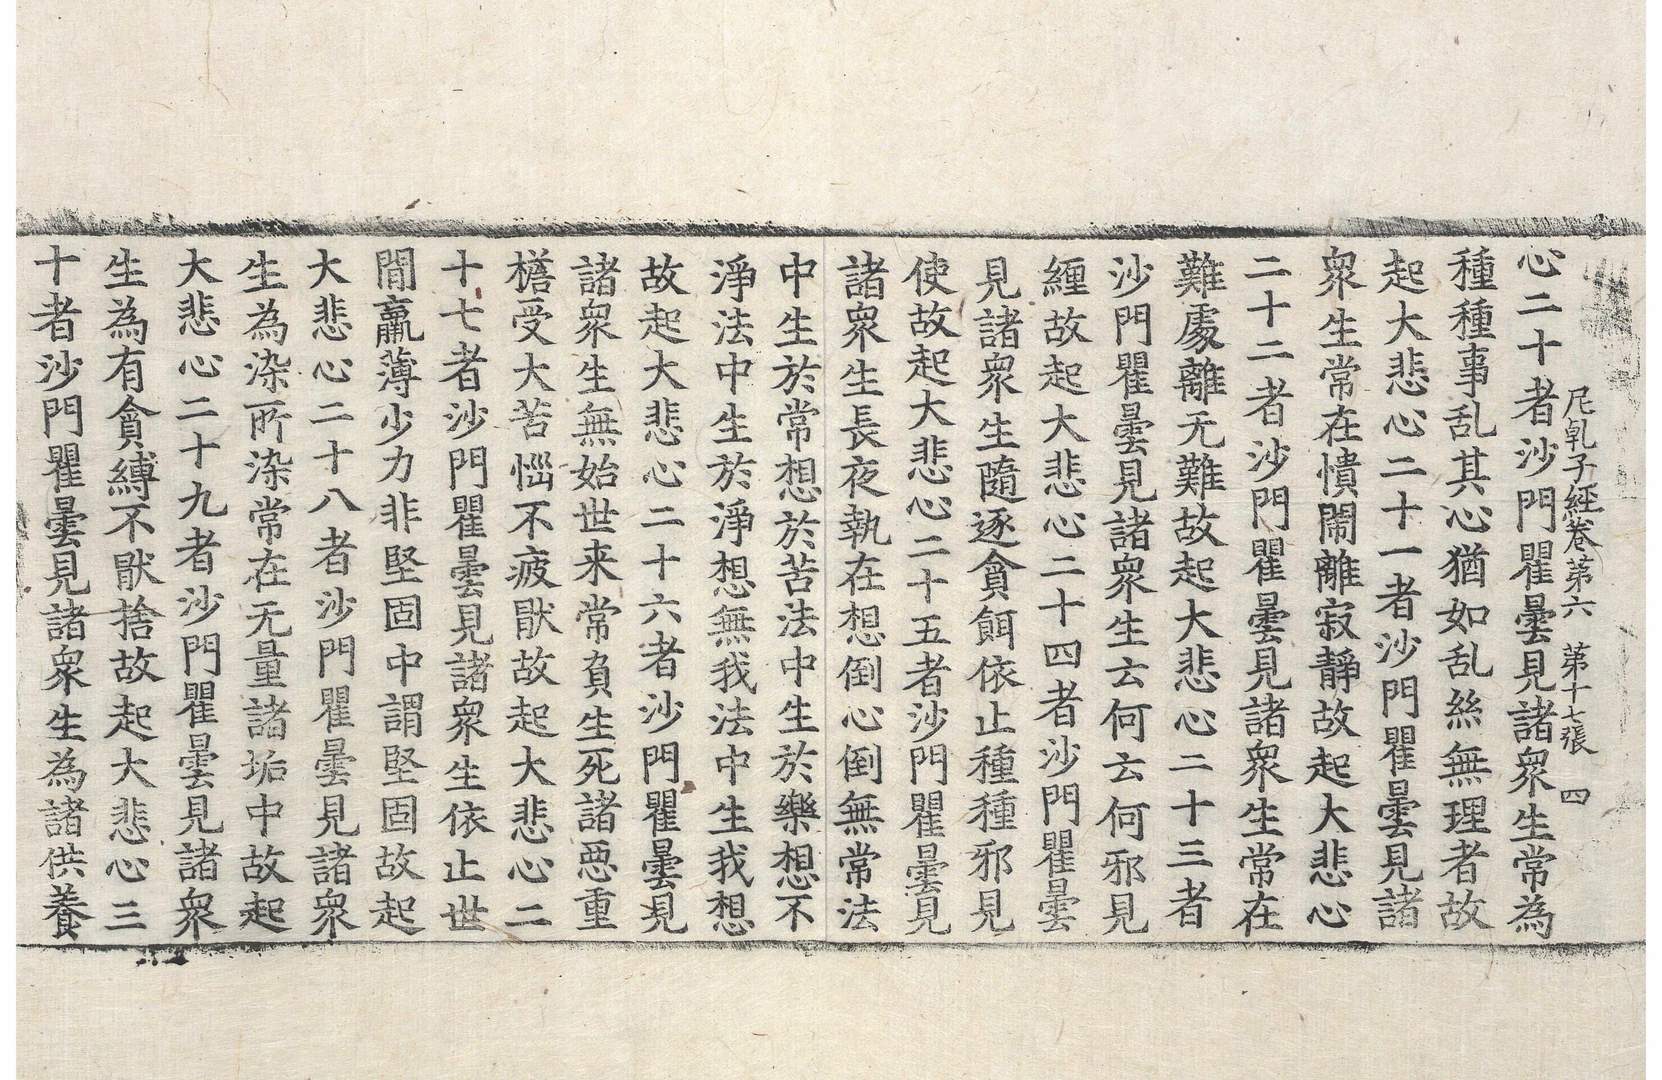 尼乹子經卷第六　第十七張　四
心二十者沙門瞿曇見諸衆生常為
種種事乱其心猶如乱絲無理者故
起大悲心二十一者沙門瞿曇見諸
衆生常在憒閙離寂靜故起大悲心
二十二者沙門瞿曇見諸衆生常在
難處離无難故起大悲心二十三者
沙門瞿曇見諸衆生云何云何邪見
纏故起大悲心二十四者沙門瞿曇
見諸衆生隨逐貪餌依止種種邪見
使故起大悲心二十五者沙門瞿曇見
諸衆生長夜執在想倒心倒無常法
中生於常想於苦法中生於樂想不
淨法中生於淨想無我法中生我想
故起大悲心二十六者沙門瞿曇見
諸衆生無始世来常負生死諸惡重
檐受大苦惱不疲猒故起大悲心二
十七者沙門瞿曇見諸衆生依止世
間羸薄少力非堅固中謂堅固故起
大悲心二十八者沙門瞿曇見諸衆
生為染所染常在无量諸垢中故起
大悲心二十九者沙門瞿曇見諸衆
生為有貪縛不猒捨故起大悲心三
十者沙門瞿曇見諸衆生為諸供養